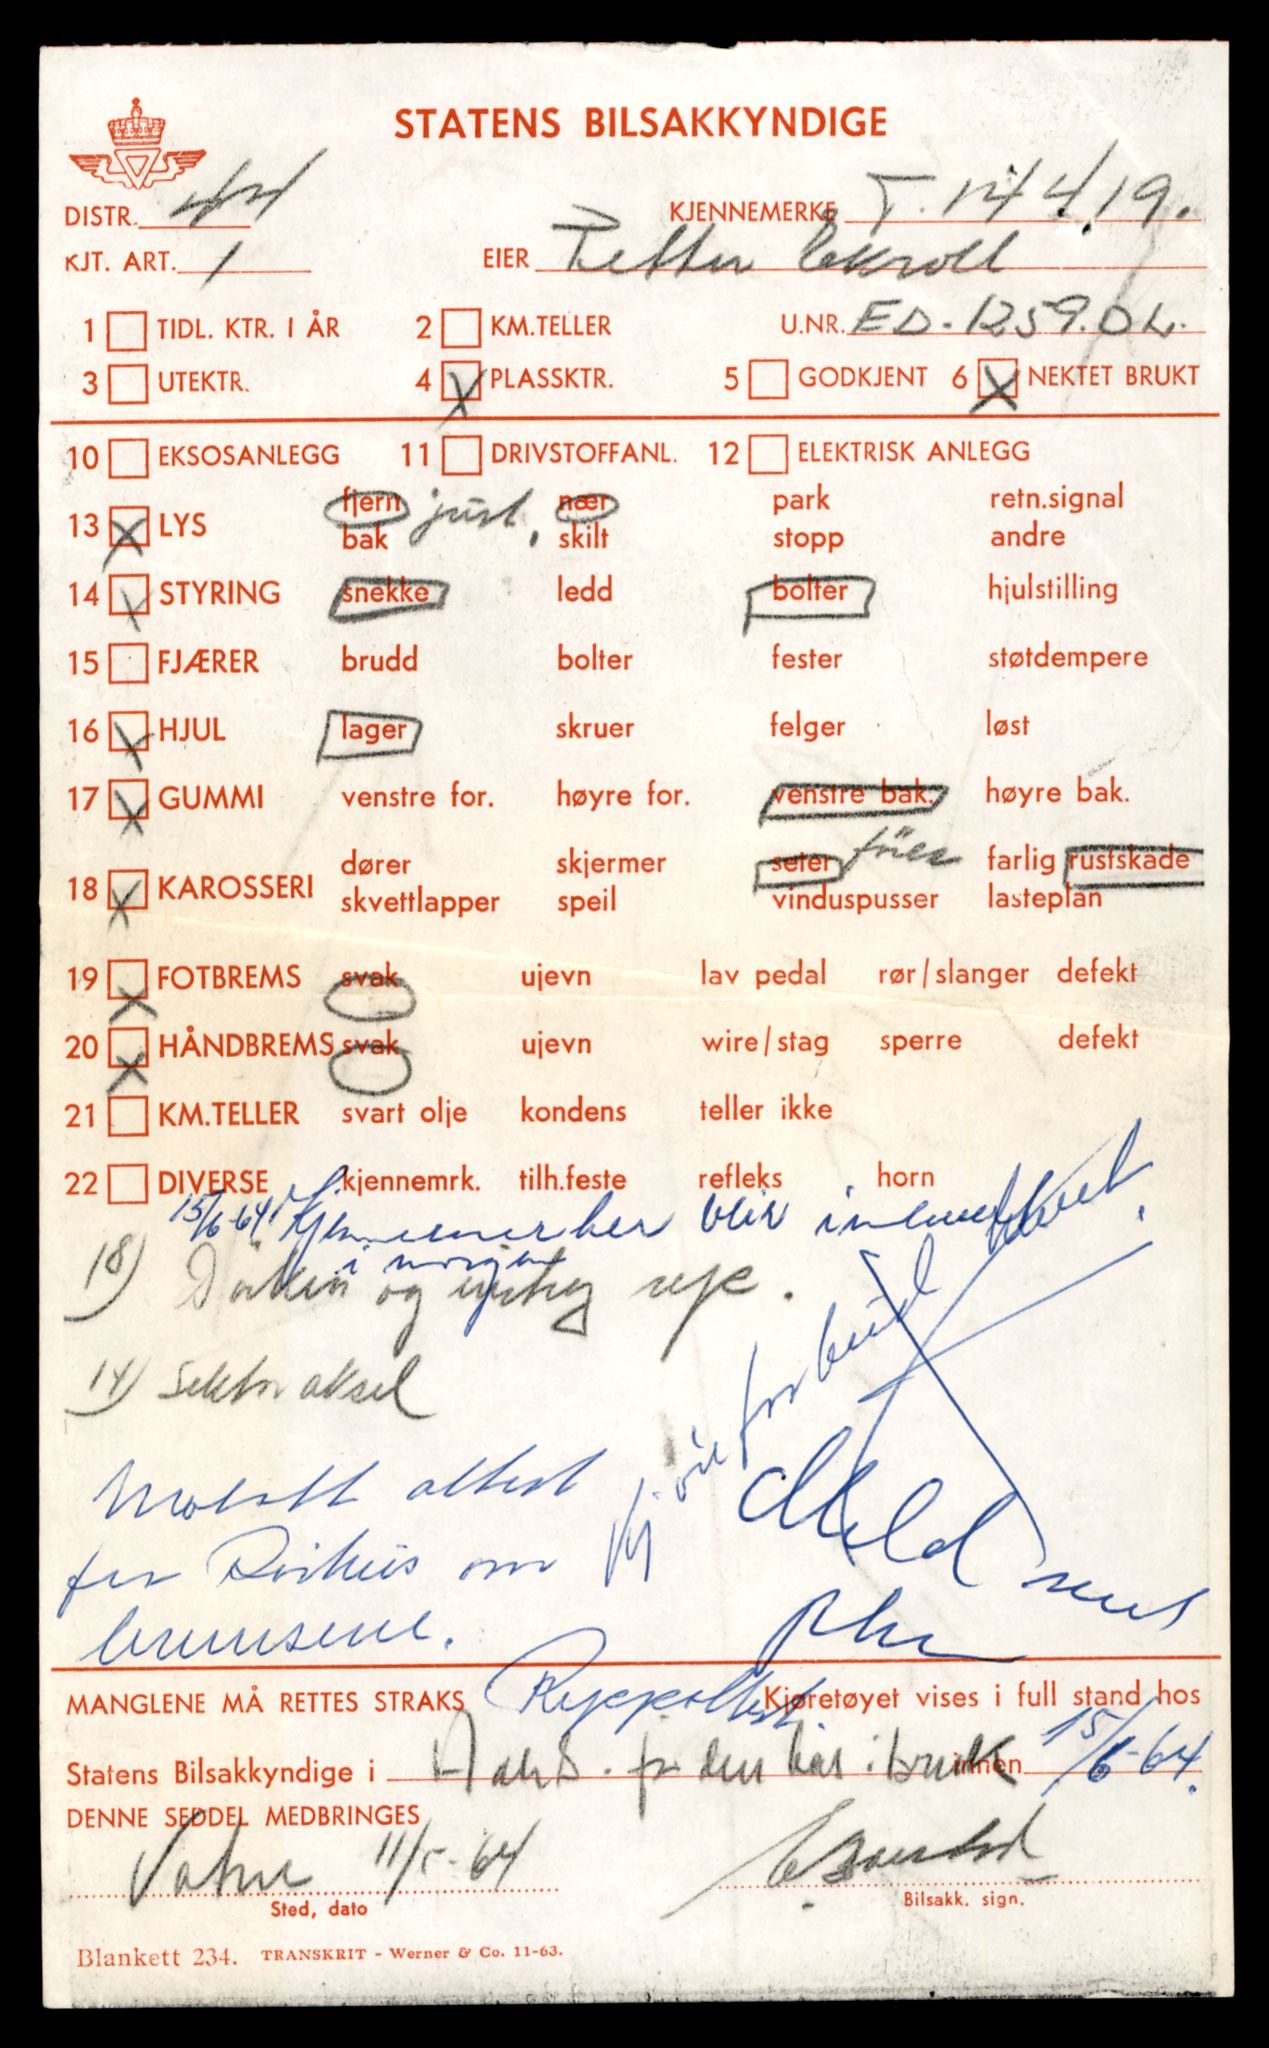 STATENS BILSAKKYNDIGE
DISTR. KJENNEMERKE T. 14419.
KJT. ART. 1 EIER Petter Ekroll
1 TIDL. KTR. I ÅR 2 KM.TELLER U.NR. ED-1259.DL.
3 UTEKTR. 4 X PLASSKTR. 5 GODKJENT 6 X NEKTET BRUKT
10 EKSOSANLEGG 11 DRIVSTOFFANL. 12 ELEKTRISK ANLEGG
13 X LYS fjern just. nær park retn.signal
bak skilt stopp andre
14 X STYRING snekke ledd bolter hjulstilling
15 FJÆRER brudd bolter fester støtdempere
16 X HJUL lager skruer felger løst
17 X GUMMI venstre for. høyre for. venstre bak. høyre bak.
18 X KAROSSERI dører skjermer seter farlig rustskade
skvettlapper speil vinduspusser lasteplan
19 X FOTBREMS svak ujevn lav pedal rør/slanger defekt
20 X HÅNDBREMS svak ujevn wire/stag sperre defekt
21 KM.TELLER svart olje kondens teller ikke
22 DIVERSE kjennemrk. tilh.feste refleks horn
15/6-64 Kjennemerker blir
i morgen
18) og rep.
14) Sektoraksel
Motatt attest
for om
bremsene.
Meld
MANGLENE MÅ RETTES STRAKS Kjøretøyet vises i full stand hos
Statens Bilsakkyndige i før den tas i bruk innen 15/6-64.
DENNE SEDDEL MEDBRINGES
Vatne 11/5-64
Sted, dato Bilsakk. sign.
Blankett 234. TRANSKRIT - Werner & Co. 11-63.